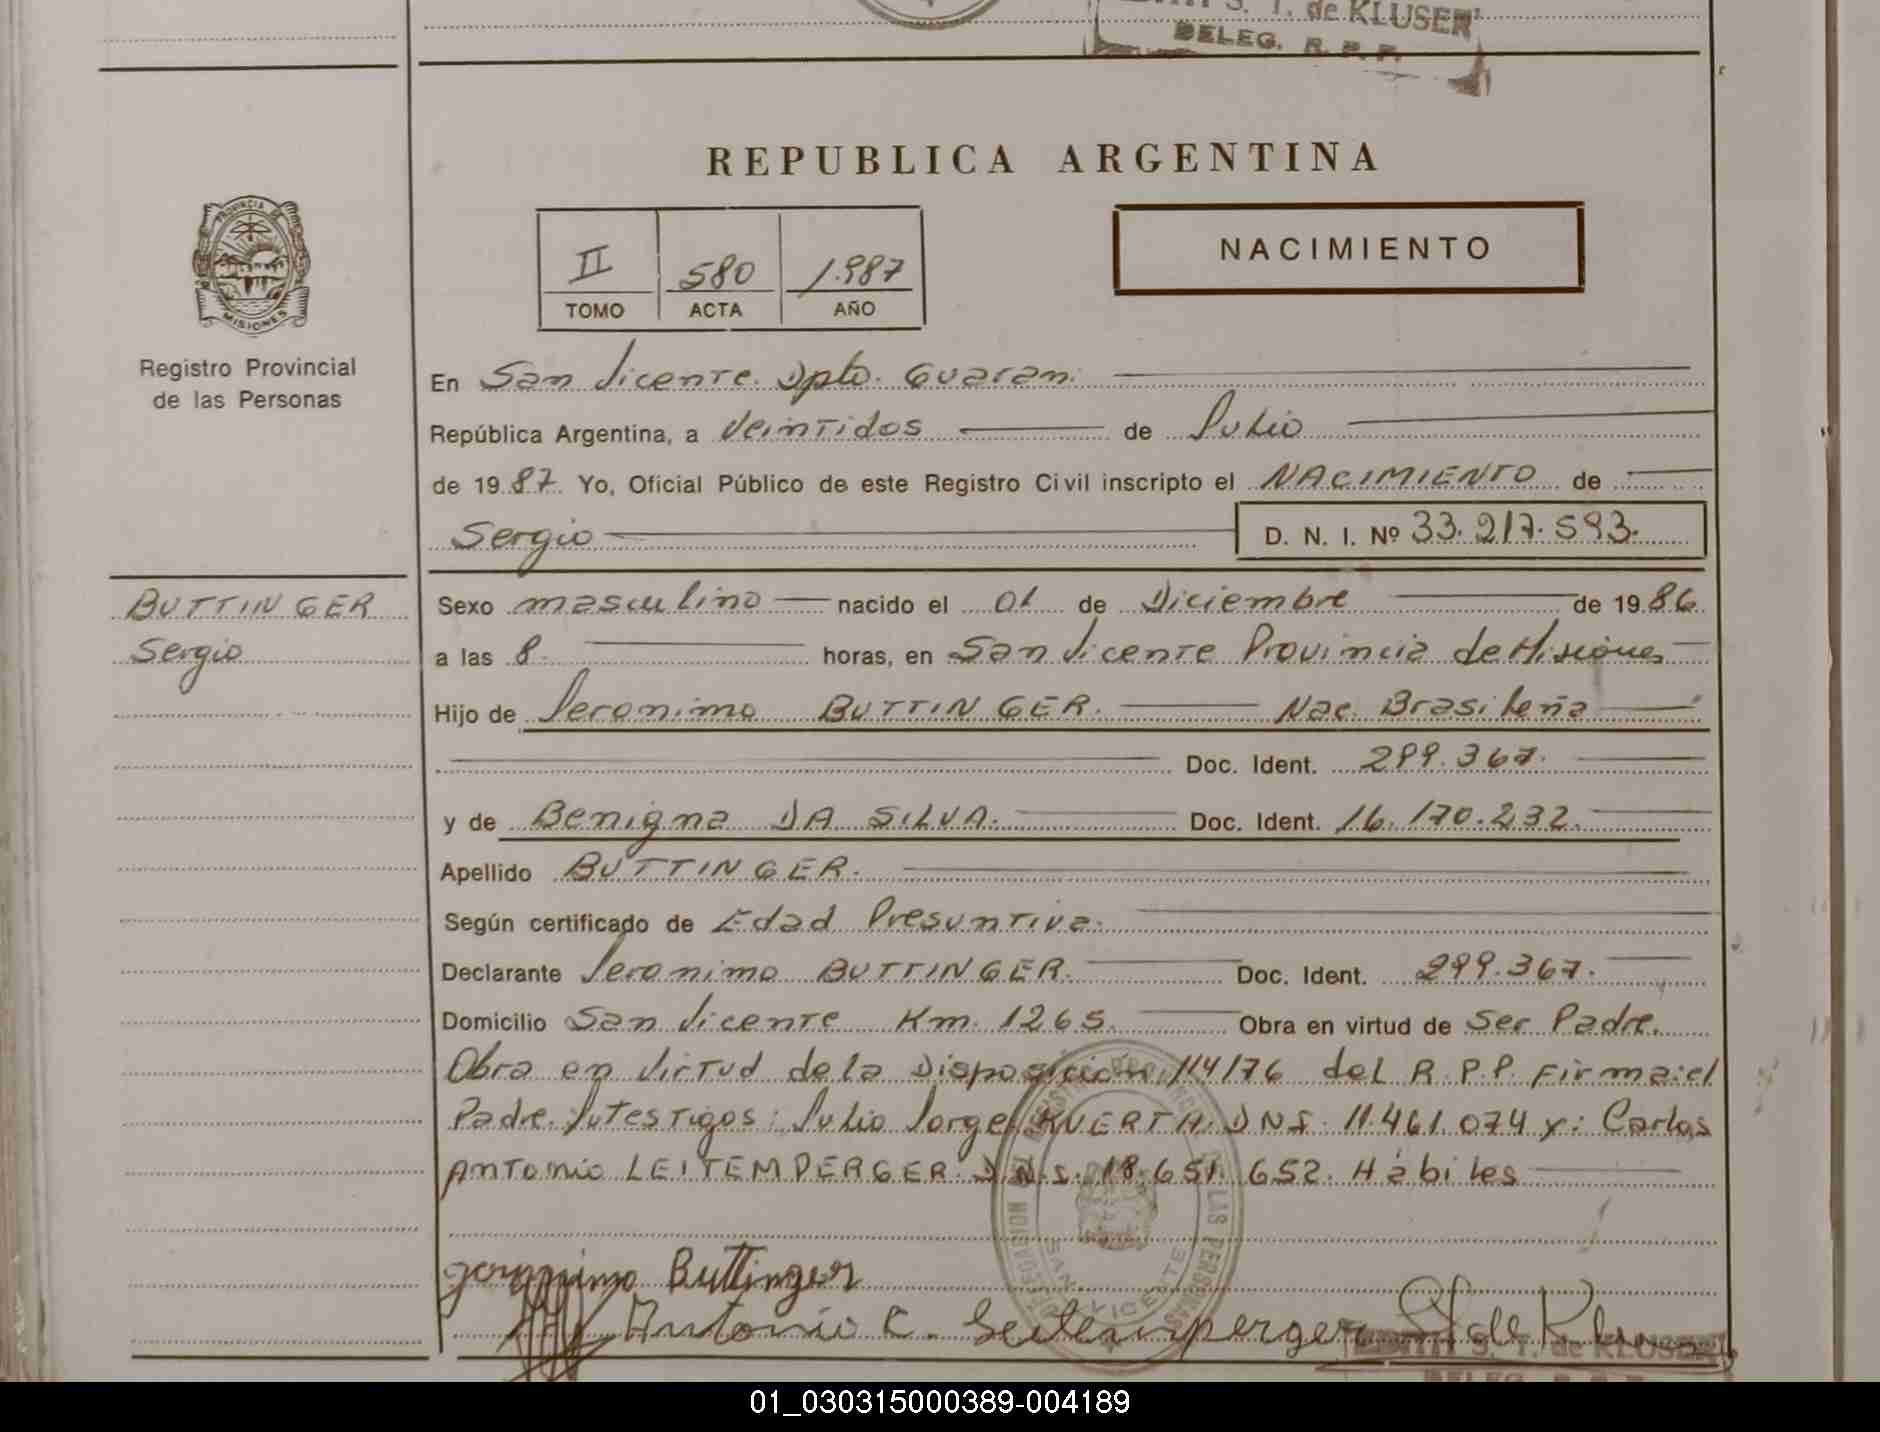 S. T. de KLUSER
DELEG. R. P. P.
REPUBLICA ARGENTINA
PROVINCIA DE
MISIONES
Registro Provincial
de las Personas
II 580 1.987
TOMO ACTA AÑO
NACIMIENTO
En San Vicente. Dpto. Guaraní
República Argentina, a Veintidos de Julio
de 1987. Yo, Oficial Público de este Registro Civil inscripto el NACIMIENTO de
Sergio D. N. I. Nº 33.217.593.
BUTTINGER
Sergio
Sexo masculino nacido el 01 de Diciembre de 1986
a las 8. horas, en San Vicente Provincia de Misiones
Hijo de Jeronimo BUTTINGER. Nac. Brasileña
Doc. Ident. 299.367.
y de Benigna DA SILVA. Doc. Ident. 16.170.232.
Apellido BUTTINGER.
Según certificado de Edad Presuntiva.
Declarante Jeronimo BUTTINGER. Doc. Ident. 299.367.
Domicilio San Vicente Km. 1265. Obra en virtud de Ser Padre.
Obra en Virtud de la Disposición 114/76 del R.P.P. Firma:el
Padre. Testigos: Julio Jorge KUERTH. DNI. 11.461.074 y: Carlos
Antonio LEITEMPERGER. D.N.I. 18.651.652. Hábiles
Jeronimo Buttinger
Antonio C. Leitemperger
SAN VICENTE
S. T. de KLUSER
01_030315000389-004189